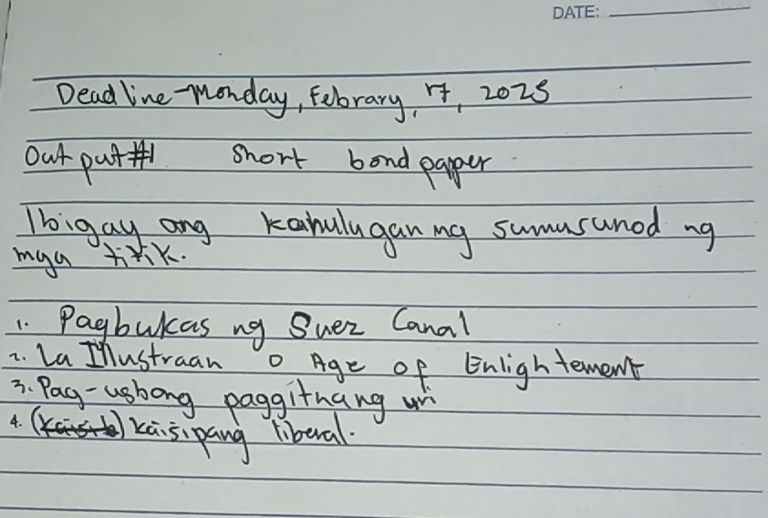 DATE:
Deadline-Monday, Febrary, 17, 2025
Out put #1 Short bond papper
Ibigay ang kahulugan ng sumusunod ng
mga titik.
1. Pagbukas ng Suez Canal
2. La Illustraan o Age of Enlightement
3. Pag-usbong paggitnang uri
4. (kaisib) kaisipang liberal.